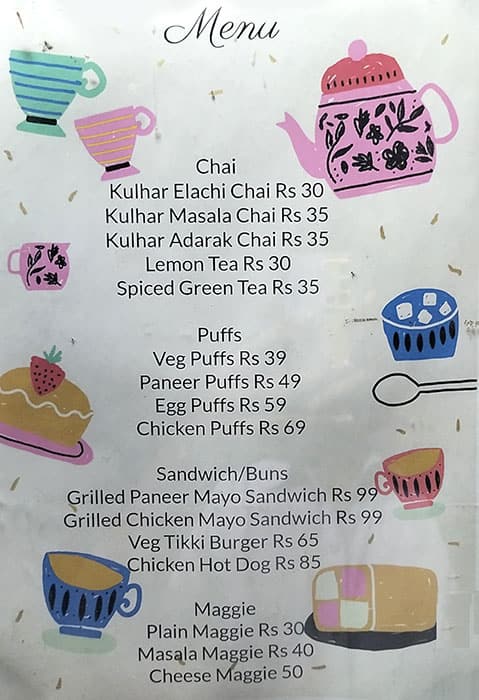 Menu
Chai
Kulhar Elachi Chai Rs 30
Kulhar Masala Chai Rs 35
Kulhar Adarak Chai Rs 35
Lemon Tea Rs 30
Spiced Green Tea Rs 35
Puffs
Veg Puffs Rs 39
Paneer Puffs Rs 49
Egg Puffs Rs 59
Chicken Puffs Rs 69
Sandwich/Buns
Grilled Paneer Mayo Sandwich Rs 99
Grilled Chicken Mayo Sandwich Rs 99
Veg Tikki Burger Rs 65
Chicken Hot Dog Rs 85
Maggie
Plain Maggie Rs 30
Masala Maggie Rs 40
Cheese Maggie 50